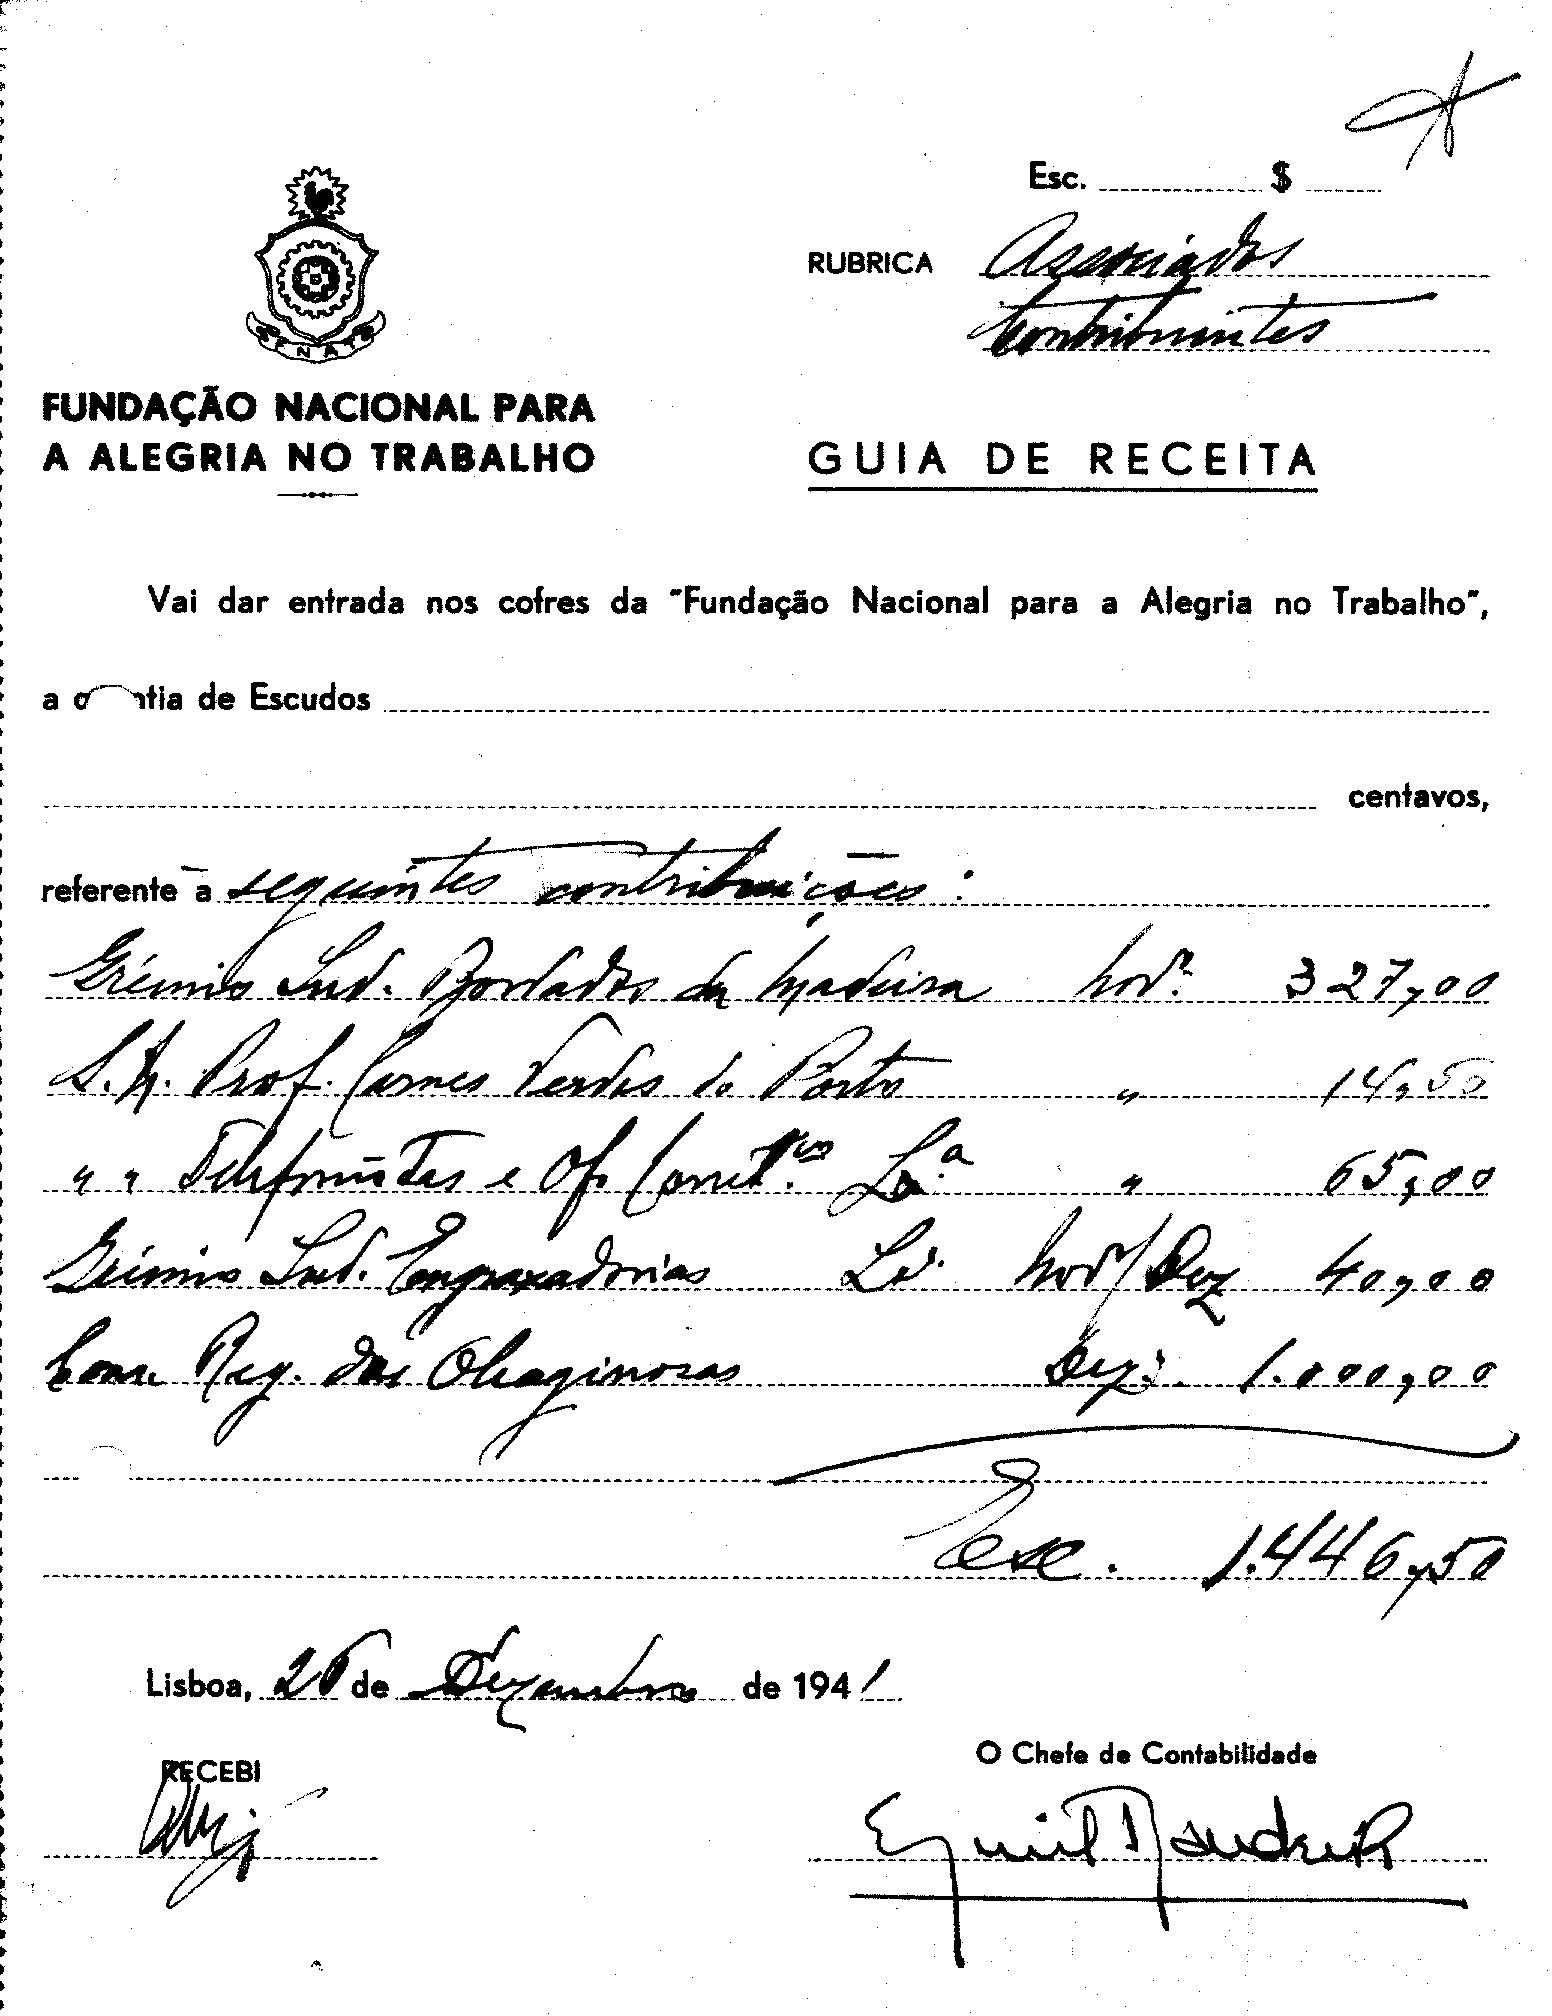 Esc. $
RUBRICA Associados
Contribuintes
FENAT
FUNDAÇÃO NACIONAL PARA
A ALEGRIA NO TRABALHO
GUIA DE RECEITA
Vai dar entrada nos cofres da "Fundação Nacional para a Alegria no Trabalho",
a ntia de Escudos
centavos,
referente a seguintes contribuições:
Grémio Ind. Bordados da Madeira Novº. 327,00
S. N. Prof. Carnes Verdes do Porto " 14,50
" " Telefonistas e Of. Lxª. " 65,00
Grémio Ind. Engraxadorias Lx. Novº/Dez 40,00
Com. Reg. das Oleaginosas Dez. 1.000,00
Esc. 1.446,50
Lisboa, 26 de Dezembro de 1941
RECEBI
O Chefe de Contabilidade